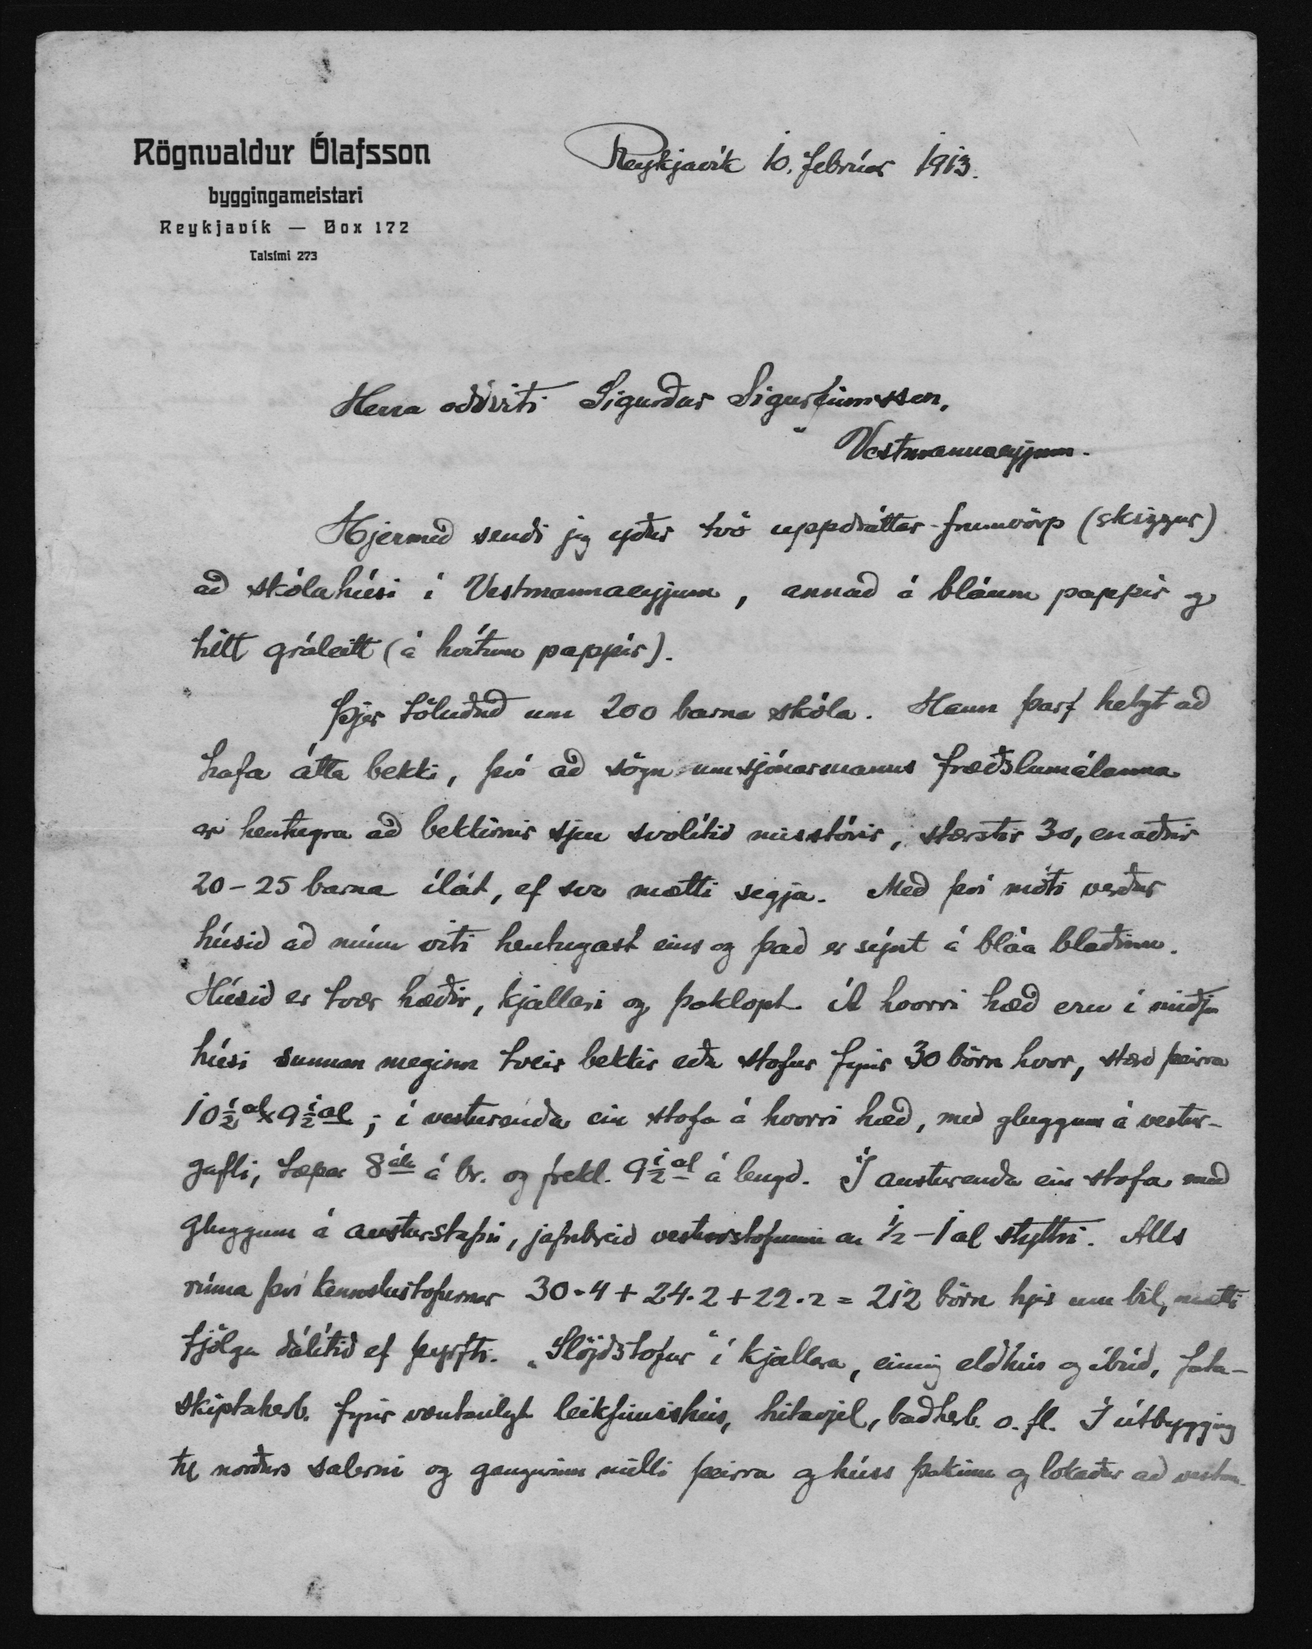 Rögnvaldur Ólafsson
byggingameistari
Reykjavík — Box 172
Talsími 273
Reykjavík 10. febrúar 1913.
Herra oddviti Sigurður Sigurfinnsson,
Vestmannaeyjum.
Hjermeð sendi jeg yður tvö uppdráttar-frumvörp (skizzur)
að skólahúsi í Vestmannaeyjum, annað á bláum pappír og
hitt gráleitt (á hvítum pappír).
Þjer töluðuð um 200 barna skóla. Hann þarf helzt að
hafa átta bekki, því að sögn umsjónarmanns fræðslumálanna
er hentugra að bekkirnir sjeu svolítið misstórir, stærstir 30, en aðrir
20-25 barna ílát, ef svo mætti segja. Með því móti verður
húsið að mínu viti hentugast eins og það er sýnt á bláa blaðinu.
Húsið er tvær hæðir, kjallari og þaklopt. Á hvorri hæð eru í miðju
húsi sunnan meginn tveir bekkir eða stofur fyrir 30 börn hvor, stærð þeirra
10½ al x 9½ al; í vesturenda ein stofa á hvorri hæð, með gluggum á vestur-
gafli, tæpar 8 al á br. og frekl. 9½ al á lengd. Í austurenda ein stofa með
gluggum á austurstafni, jafnbreið vesturstofunni en ½-1 al styttri. Alls
rúma því kennslustofurnar 30·4 + 24·2 + 22·2 = 212 börn hjer um bil, mætti
fjölga dálítið ef þyrfti. „Slöjdstofur“ í kjallara, einnig eldhús og íbúð, fata-
skiptaherb. fyrir væntanlegt leikfimishús, hitavjel, baðherb. o. fl. Í útbygging
til norðurs salerni og gangurinn milli þeirra og húss þakinn og lokaður að vestan